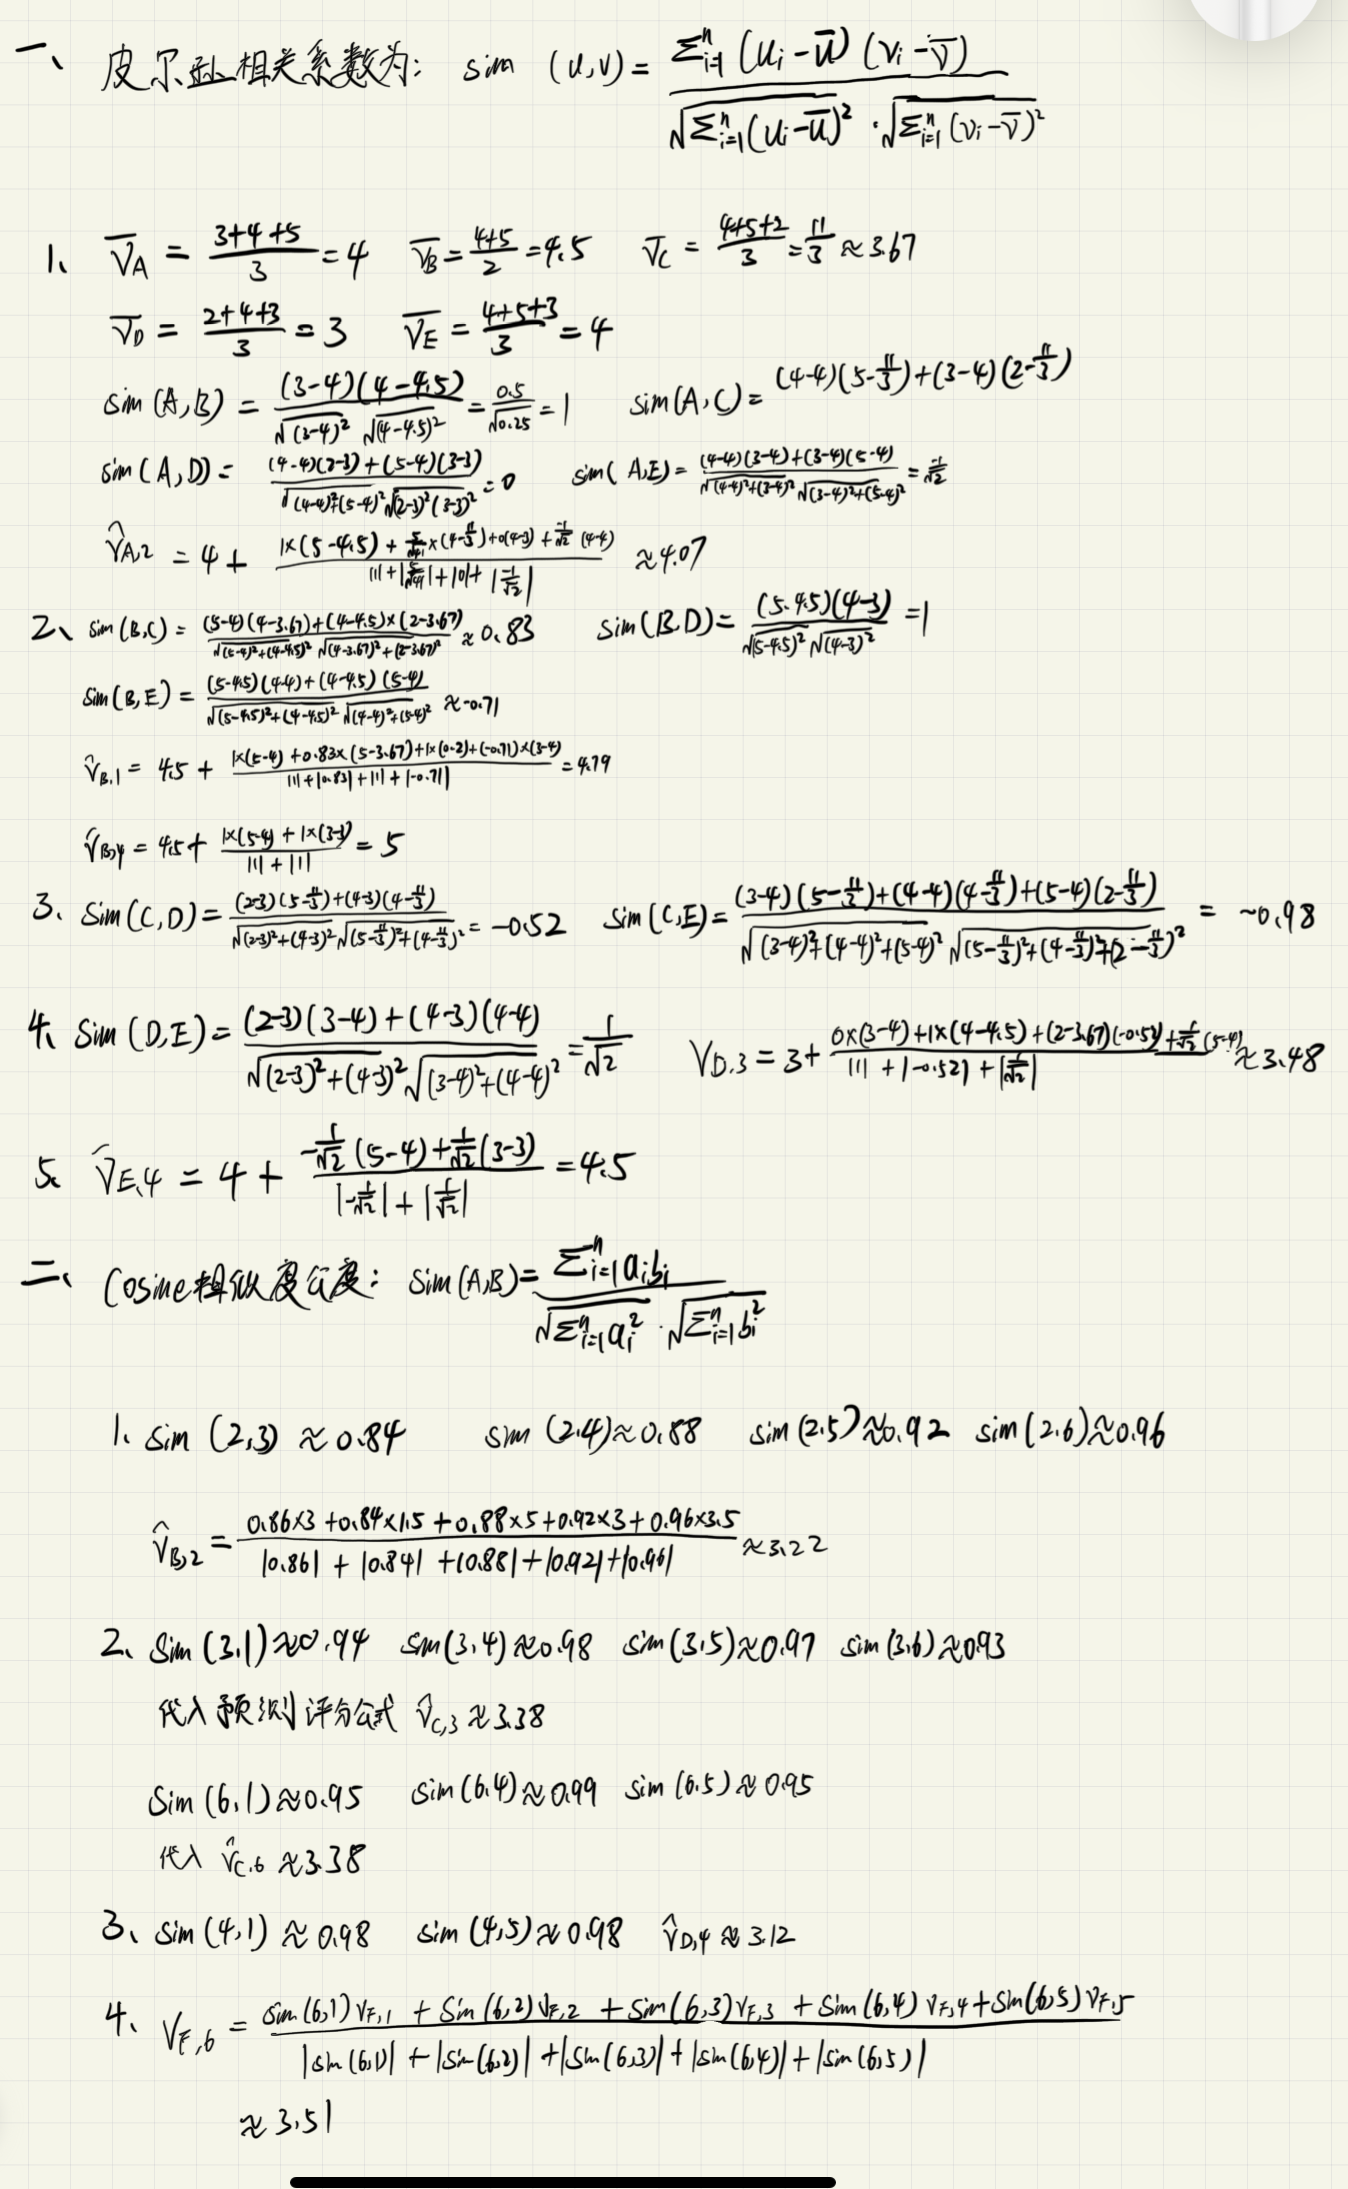 一、 皮尔逊相关系数为: sim (u,v) = Σⁿᵢ₌₁ (uᵢ-ū) (vᵢ-v̄) / √Σⁿᵢ₌₁(uᵢ-ū)² · √Σⁿᵢ₌₁(vᵢ-v̄)²
1、 V̄A = (3+4+5)/3 = 4 V̄B = (4+5)/2 = 4.5 V̄C = (4+5+2)/3 = 11/3 ≈ 3.67
V̄D = (2+4+3)/3 = 3 V̄E = (4+5+3)/3 = 4
sim (A,B) = (3-4)(4-4.5) / √(3-4)² √(4-4.5)² = 0.5/√0.25 = 1 sim(A,C) = (4-4)(5-11/3)+(3-4)(2-11/3)
sim(A,D) = (4-4)(2-3)+(5-4)(3-3) / √(4-4)²+(5-4)² √(2-3)²(3-3)² = 0 sim(A,E) = (4-4)(3-4)+(3-4)(5-4) / √(4-4)²+(3-4)² √(3-4)²+(5-4)² = -1/√2
V̂A,2 = 4 + 1×(5-4.5) + 5/√41 ×(4-11/3)+0(4-3)+ -1/√2 (4-4) / |1|+|5/√41|+|0|+|-1/√2| ≈ 4.07
2、 sim(B,C) = (5-4)(4-3.67)+(4-4.5)×(2-3.67) / √(5-4)²+(4-4.5)² √(4-3.67)²+(2-3.67)² ≈ 0.83 sim(B.D) = (5-4.5)(4-3) / √(5-4.5)² √(4-3)² = 1
sim(B,E) = (5-4.5)(4-4)+(4-4.5)(5-4) / √(5-4.5)²+(4-4.5)² √(4-4)²+(5-4)² ≈ -0.71
V̂B,1 = 4.5 + 1×(5-4)+0.83×(5-3.67)+1×(0-2)+(-0.71)×(3-4) / |1|+|0.83|+|1|+|-0.71| = 4.79
V̂B,4 = 4.5+ 1×(5-4)+1×(3-3) / |1|+|1| = 5
3、 Sim(C,D) = (2-3)(5-11/3)+(4-3)(4-11/3) / √(2-3)²+(4-3)² √(5-11/3)²+(4-11/3)² = -0.52 sim(C,E) = (3-4)(5-11/3)+(4-4)(4-11/3)+(5-4)(2-11/3) / √(3-4)²+(4-4)²+(5-4)² √(5-11/3)²+(4-11/3)²+(2-11/3)² = -0.98
4、 Sim(D,E) = (2-3)(3-4)+(4-3)(4-4) / √(2-3)²+(4-3)² √(3-4)²+(4-4)² = 1/√2 VD.3 = 3+ 0×(3-4)+1×(4-4.5)+(2-3.67)(-0.52)+1/√2(5-4) / |1|+|-0.52|+|1/√2| ≈ 3.48
5、 V̂E,4 = 4 + -1/√2 (5-4)+1/√2(3-3) / |-1/√2|+|1/√2| = 4.5
二、 Cosine相似度公度: Sim(A,B) = Σⁿᵢ₌₁aᵢbᵢ / √Σⁿᵢ₌₁aᵢ² · √Σⁿᵢ₌₁bᵢ²
1、 sim (2,3) ≈ 0.84 sim (2.4) ≈ 0.88 sim(2.5) ≈ 0.92 sim(2.6) ≈ 0.96
V̂B,2 = 0.86×3+0.84×1.5+0.88×5+0.92×3+0.96×3.5 / |0.86|+|0.84|+|0.88|+|0.92|+|0.96| ≈ 3.22
2、 Sim(3,1) ≈ 0.94 sim(3,4) ≈ 0.98 sim(3,5) ≈ 0.97 sim(3,6) ≈ 0.93
代入预测评分公式 V̂C,3 ≈ 3.38
Sim(6,1) ≈ 0.95 sim(6,4) ≈ 0.99 sim(6.5) ≈ 0.95
代入 V̂C.6 ≈ 3.38
3、 Sim(4,1) ≈ 0.98 sim(4,5) ≈ 0.98 V̂D,4 ≈ 3.12
4、 VF,6 = sim(6,1)VF,1 + Sim(6,2)VF,2 + Sim(6,3)VF,3 + Sim(6,4)VF,4 + Sim(6,5)VF,5 / |sim(6,1)| + |sim(6,2)| + |sim(6,3)| + |sim(6,4)| + |sim(6,5)|
≈ 3.51